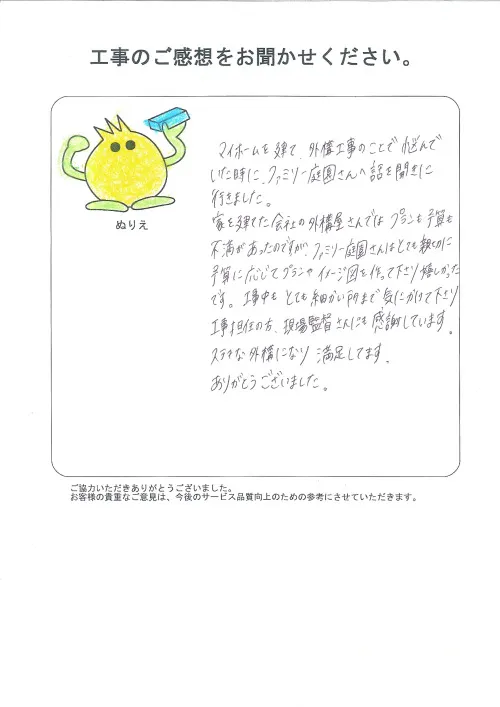 工事のご感想をお聞かせください。
マイホームを建て、外構工事のことで悩んで
いた時に、ファミリー庭園さんへ話を聞きに
行きました。
家を建てた会社の外構屋さんでは プランも予算も
不満があったのですが、ファミリー庭園さんはとても親切に
予算に応じてプランやイメージ図を作って下さり嬉しかった
です。工事中も とても細かい所まで気にかけて下さり
工事担任の方、現場監督さんにも感謝しています。
ステキな外構になり 満足してます。
ありがとうございました。
ぬりえ
ご協力いただきありがとうございました。
お客様の貴重なご意見は、今後のサービス品質向上のための参考にさせていただきます。